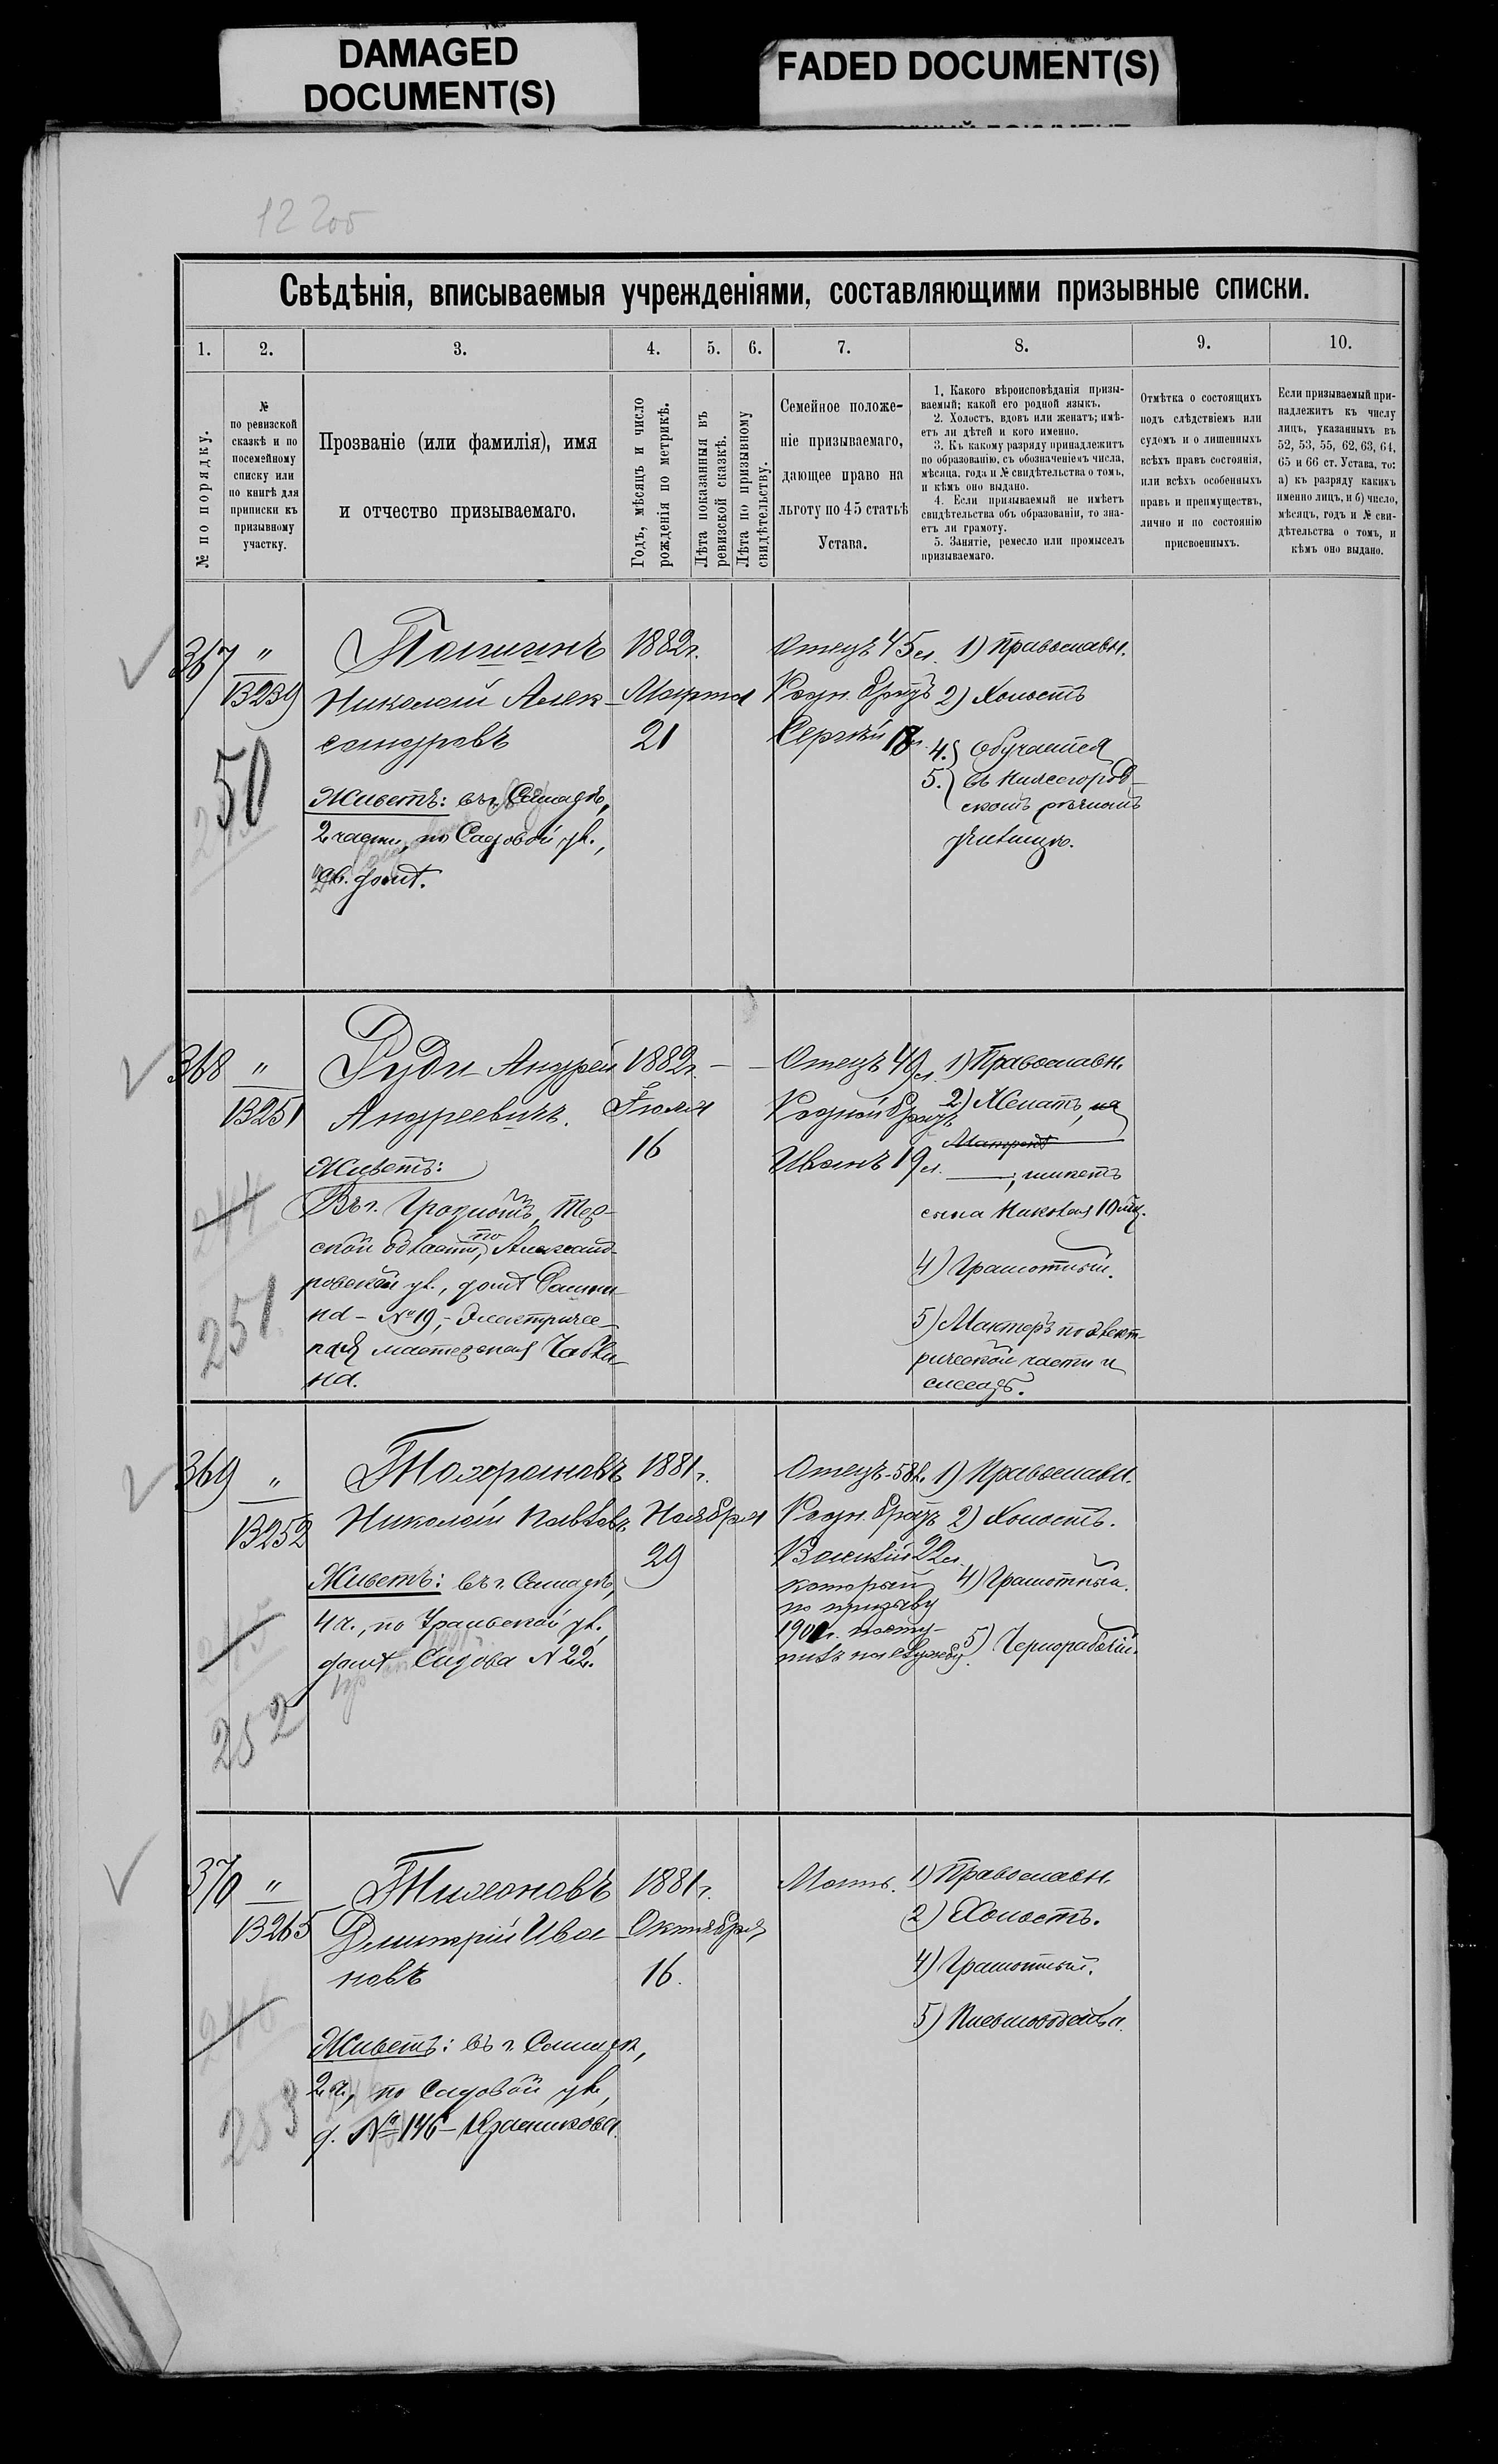 DAMAGED
DOCUMENT(S)
FADED DOCUMENT(S)
Свѣдѣнія, вписываемыя учрежденіями, составляющими призывные списки.
1.
2.
3.
4.
5.
6.
7.
8.
9.
10.
№ по порядку.
№
по ревизской
сказкѣ и по
посемейному
списку или
по книгѣ для
приписки къ
призывному
участку.
Прозваніе (или фамилія), имя
и отчество призываемаго.
Годъ, мѣсяцъ и число
рожденія по метрикѣ.
Лѣта показанныя въ
ревизской сказкѣ.
Лѣта по призывному
свидѣтельству.
Семейное положе-
ніе призываемаго,
дающее право на
льготу по 45 статьѣ
Устава.
1. Какого вѣроисповѣданія призы-
ваемый; какой его родной языкъ.
2. Холостъ, вдовъ или женатъ; имѣ-
етъ ли дѣтей и кого именно.
3. Къ какому разряду принадлежитъ
по образованію, съ обозначеніемъ числа,
мѣсяца, года и № свидѣтельства о томъ,
и кѣмъ оно выдано.
4. Если призываемый не имѣетъ
свидѣтельства объ образованіи, то зна-
етъ ли грамоту.
5. Занятіе, ремесло или промыселъ
призываемаго.
Отмѣтка о состоящихъ
подъ слѣдствіемъ или
судомъ и о лишенныхъ
всѣхъ правъ состоянія,
или всѣхъ особенныхъ
правъ и преимуществъ,
лично и по состоянію
присвоенныхъ.
Если призываемый при-
надлежитъ къ числу
лицъ, указанныхъ въ
52, 53, 55, 62, 63, 64,
65 и 66 ст. Устава, то:
а) къ разряду какихъ
именно лицъ, и б) число,
мѣсяцъ, годъ и № сви-
дѣтельства о томъ, и
кѣмъ оно выдано.
367
"
13239
50
Николай Алек-
сандровъ
Живетъ: въ г. Самарѣ,
2 части, по Садовой ул.,
св. домъ.
1882 г.
Марта
21
Отецъ 45 л.
Родн. братъ
Сергѣй
1) Православн.
2) Холостъ
4.) Обучается
5.) въ Нижегород-
скомъ рѣчномъ
училищѣ.
368
"
13251
251
Руди Андрей
Андреевичъ.
Живетъ:
Въ г. Грозномъ, Тер-
ской области, по Александ-
ровской ул., домъ
на - № 19, - Электриче-
ская мастерская
на.
1882 г.
Іюля
16
Отецъ 49 л.
Родной братъ
Иванъ 19 л.
1) Православн.
2) Женатъ, на
; имѣетъ
сына Николая 10 мѣс.
4) Грамотный.
5) Мантеръ по элект-
рической части и
слесарь.
369
"
13252
252
Николай Павловъ
Живетъ: въ г. Самарѣ,
4 ч., по Уральской ул.,
домъ Сидова № 22.
1881 г.
Ноября
29
Отецъ - 58 л.
Родн. братъ
Василій 22 л.
который
по призыву
1901 г. посту-
пилъ на службу.
1) Православн.
2) Холостъ.
4) Грамотный.
5) Чернорабочій.
370
"
13265
253
Тихоновъ
Дмитрій Ива-
новъ
Живетъ: въ г. Самарѣ,
2 ч., по Садовой ул.,
д. № 146 - Красникова.
1881 г.
Октября
16.
Мать.
1) Православн.
2) Холостъ.
4) Грамотный.
5) Письмоводитель.